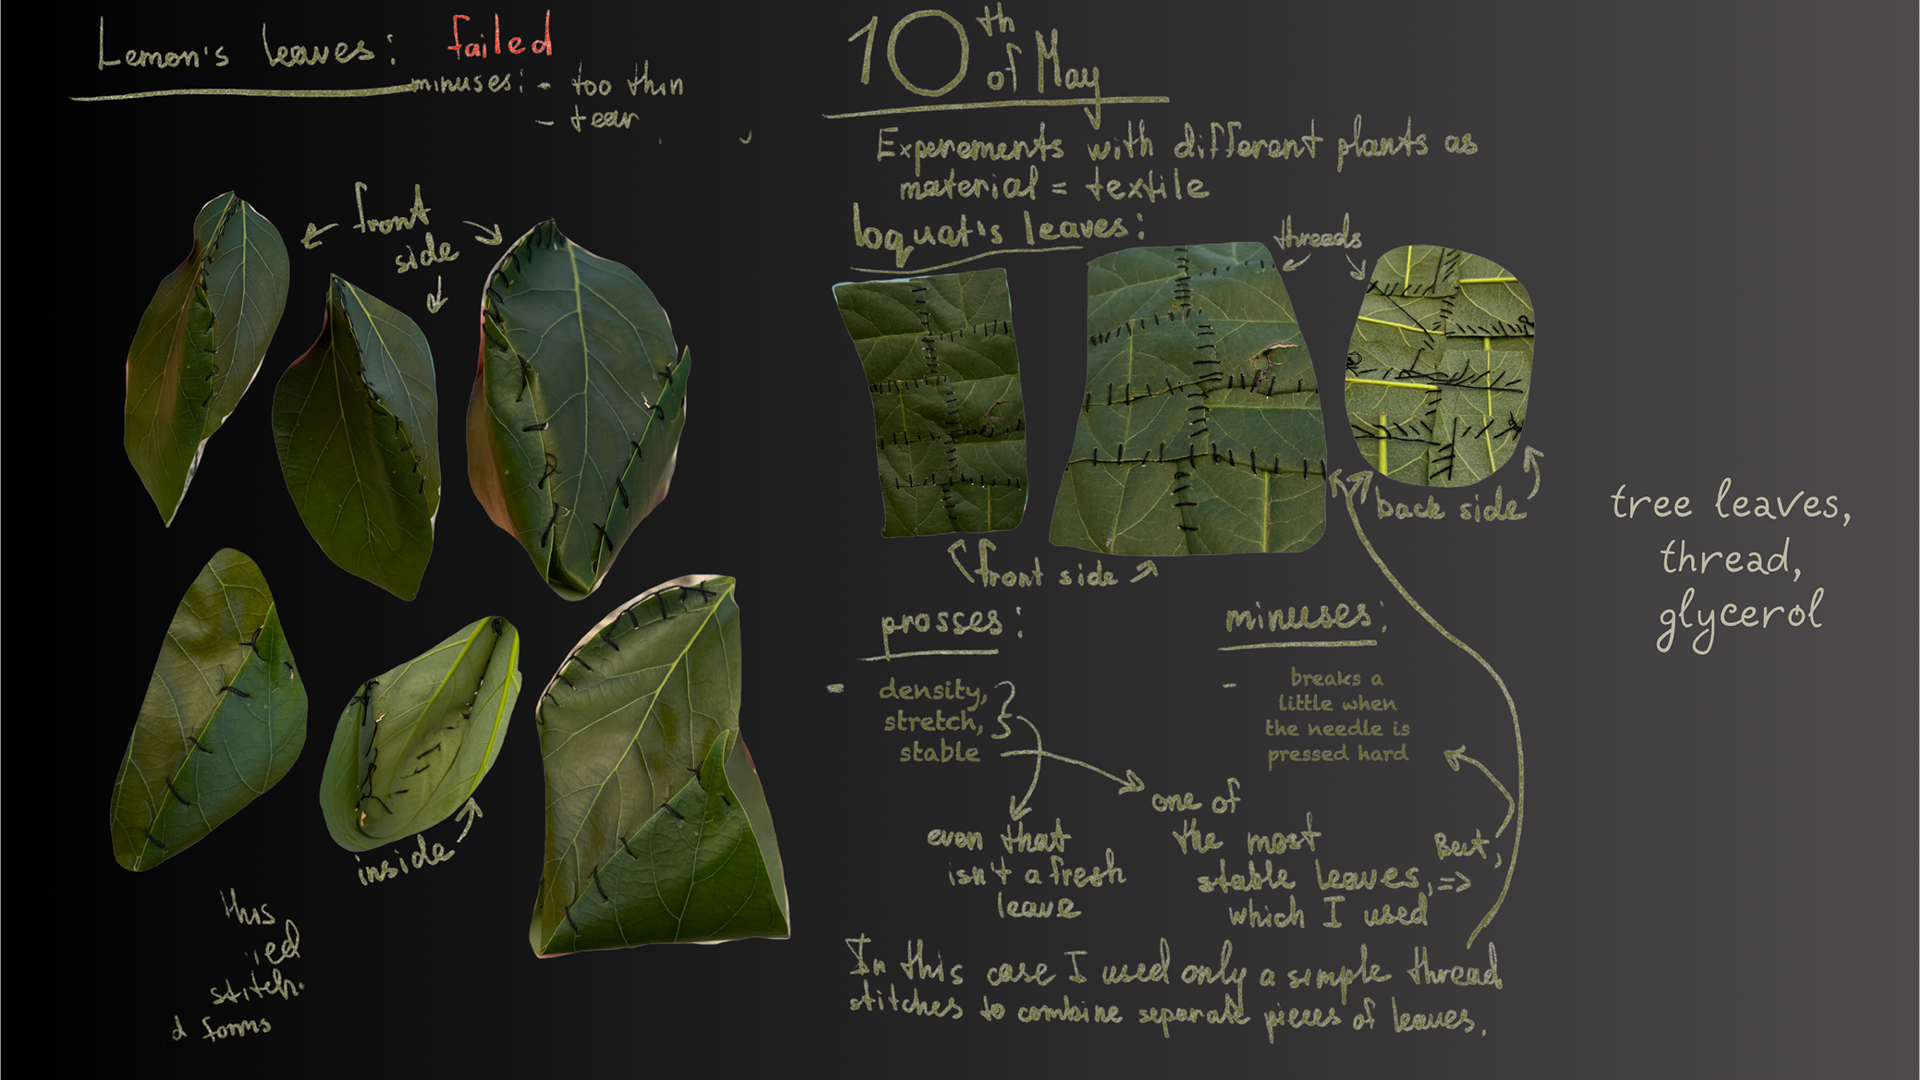 Lemon's leaves: failed
minuses: - too thin
- tear
front
side
inside
this
ied
stitch.
d forms
10th
of May
Experements with different plants as
material = textile
loquat's leaves:
threads
back side
front side
prosses:
- density,
stretch,
stable
even that
isn't a fresh
leave
one of
the most
stable leaves, =>
which I used
But,
minuses:
- breaks a
little when
the needle is
pressed hard
In this case I used only a simple thread
stitches to combine separate pieces of leaves.
tree leaves,
thread,
glycerol